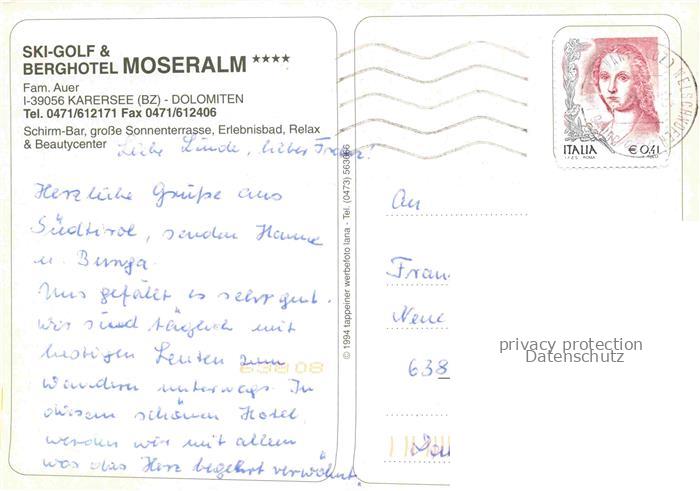 SKI-GOLF &
BERGHOTEL MOSERALM ****
Fam. Auer
I-39056 KARERSEE (BZ) - DOLOMITEN
Tel. 0471/612171 Fax 0471/612406
Schirm-Bar, große Sonnenterrasse, Erlebnisbad, Relax
& Beautycenter
Liebe Linde, lieber
Herzliche Grüße aus
Südtirol, senden Hanne
u.
Uns gefällt es sehr gut.
Wir sind täglich mit
lustigen Leuten zum
Wandern unterwegs. In
diesem schönen Hotel
werden wir mit allem
was das Herz begehrt verwöhnt.
63808
© 1994 tappeiner werbefoto lana - Tel. (0473) 563666
ITALIA € 0,41
I.P.Z.S. ROMA
An
Neue
638
privacy protection
Datenschutz